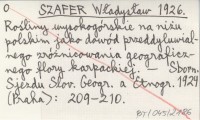 O SZAFER Władysław 1926.
Rośliny wysokogórskie na niżu
polskim jako dowód przeddyluwial-
nego zróżnicowania geograficz-
nego flory karpackiej. Sborn.
Sjezdu Slov. Geogr. a Etnogr. 1924
(Praha): 209-210.